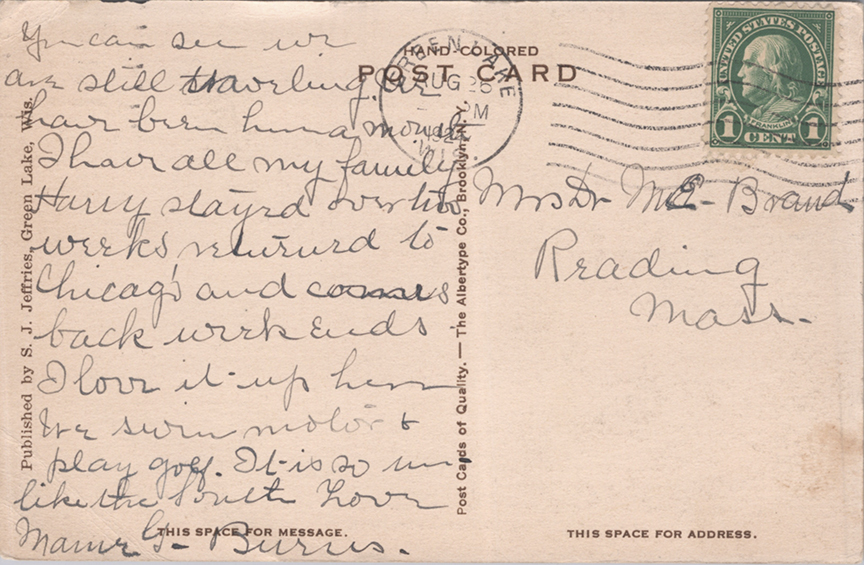 You can see we
are still traveling. We
have been here a month
I have all my family
Harry stayed over two
weeks returned to
Chicago and comes
back week ends
I love it up here
We swim motor &
play golf. It is so un-
like the South Love
Mamie G- Burns.
HAND-COLORED
POST CARD
GREEN LAKE
AUG 26
PM
WIS.
UNITED STATES POSTAGE
FRANKLIN
1 CENT 1
Mrs Dr M.E- Brand
Reading
Mass.
Published by S. J. Jeffries, Green Lake, Wis.
Post Cards of Quality. — The Albertype Co., Brooklyn, N. Y.
THIS SPACE FOR MESSAGE.
THIS SPACE FOR ADDRESS.